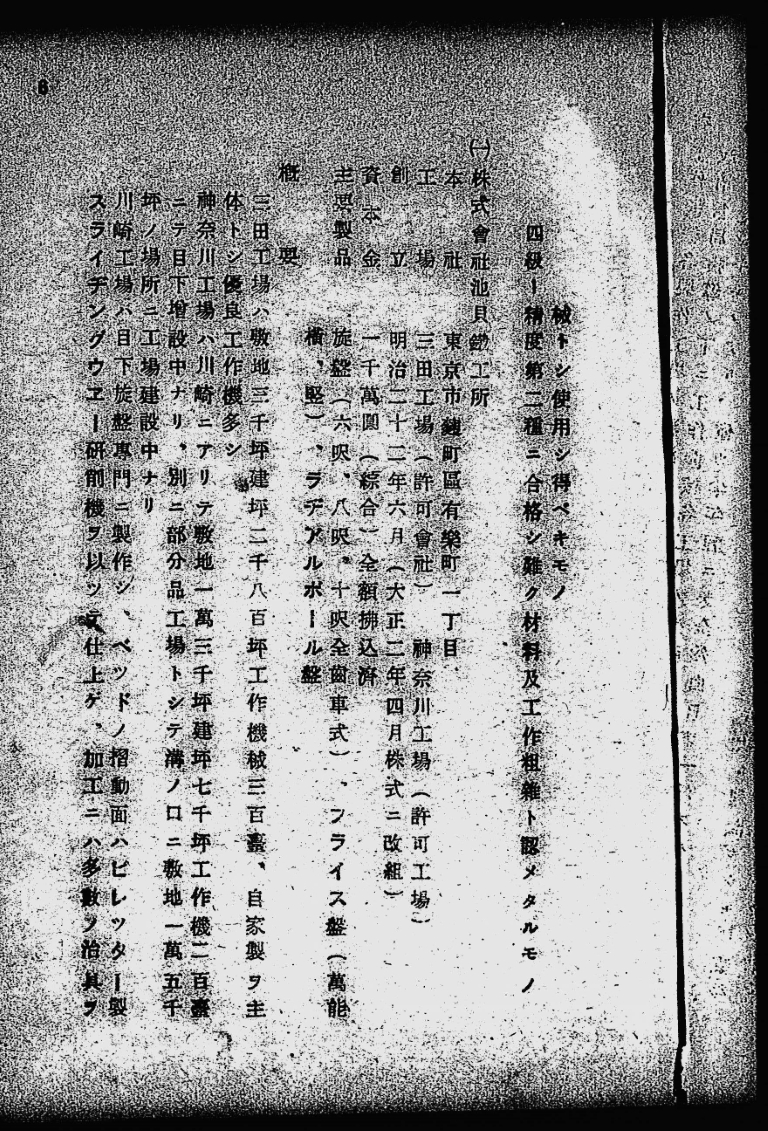 械トシ使用シ得ベキモノ
四級ー精度第二種ニ合格シ難ク材料及工作粗雜ト認メタルモノ
㈠株式會社池貝鐵工所
本社　東京市麹町區有樂町一丁目
工場　三田工場（許可會社）　神奈川工場（許可工場）
創立　明治二十二年六月（大正二年四月株式ニ改組）
資本金　一千萬圓（綜合）全額拂込濟
主要製品　旋盤（六呎、八呎。十呎全齒車式）、フライス盤（萬能
横、竪）、ラヂアルボール盤
概要
三田工場ハ敷地三千坪建坪二千八百坪工作機械三百臺、自家製ヲ主
体トシ優良工作機多シ
神奈川工場ハ川崎ニアリテ敷地一萬三千坪建坪七千坪工作機二百臺
ニテ目下增設中ナリ、別ニ部分品工場トシテ溝ノ口ニ敷地一萬五千
坪ノ場所ニ工場建設中ナリ
川崎工場ハ目下旋盤專門ニ製作シ、ベツドノ摺動面ハビレツター製
スライヂングウエー研削機ヲ以ツテ仕上ゲ、加工ニハ多數ノ治具ヲ
8